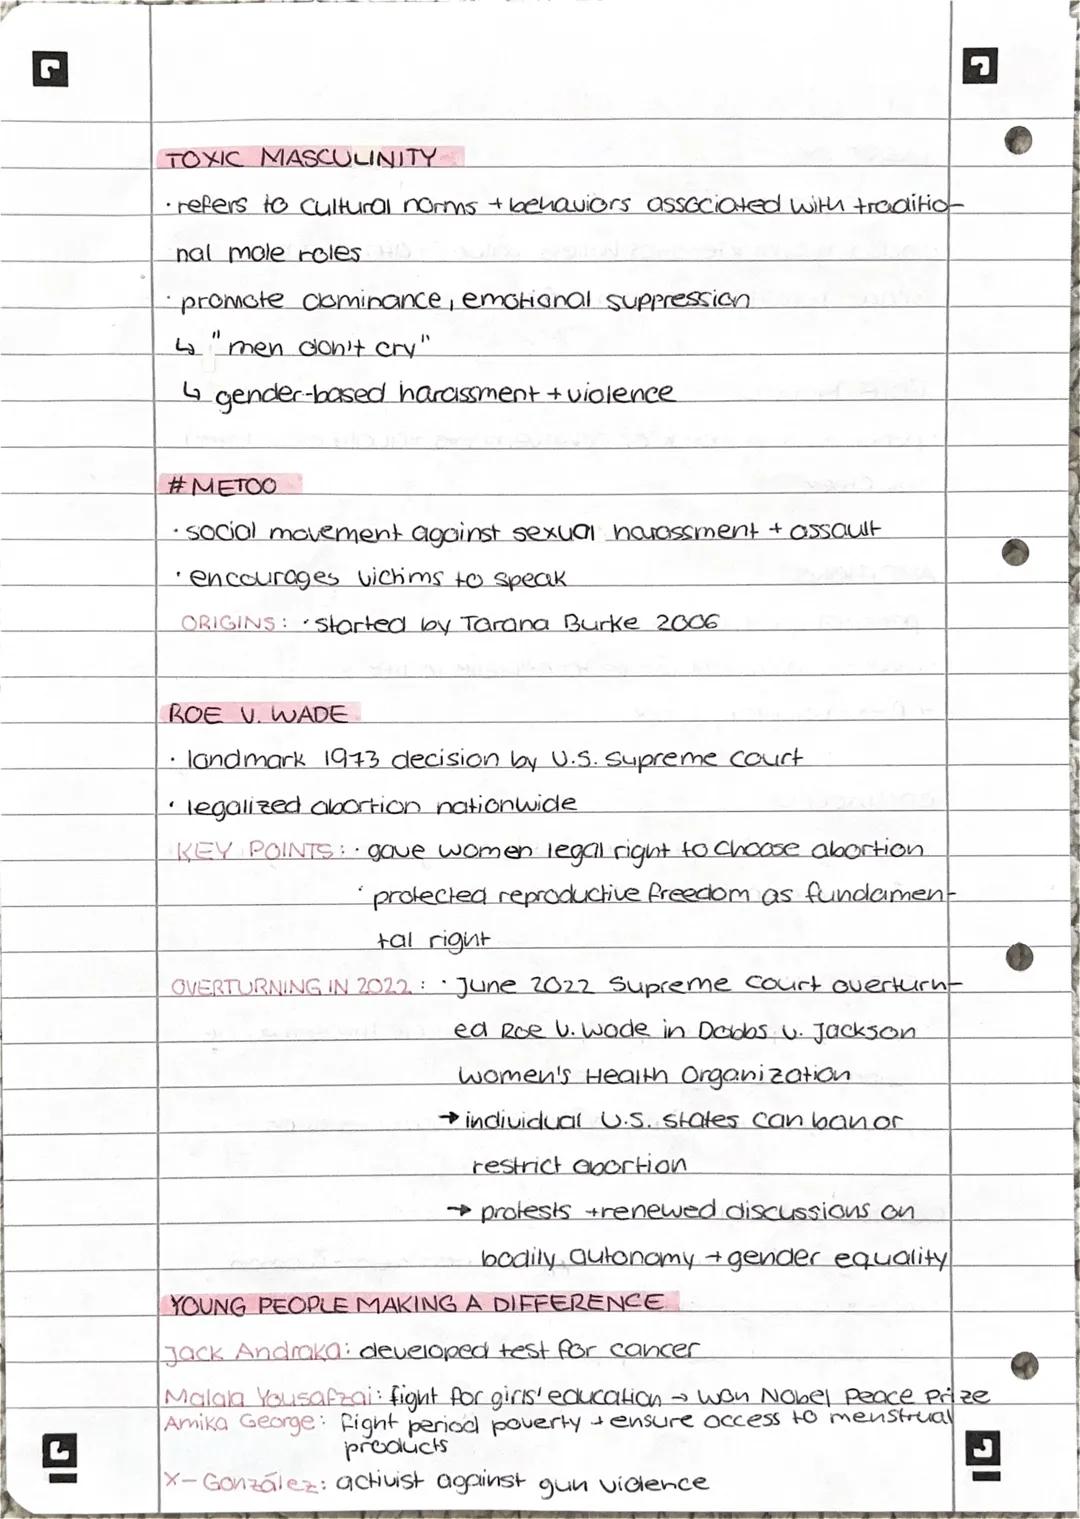 TOXIC MASCULINITY
· refers to cultural norms + behaviors associated with traditio-
nal male roles
· promote dominance, emotional suppression
↳ "men don't cry"
↳ gender-based harassment + violence
#METOO
· social movement against sexual harassment + assault
· encourages victims to speak
ORIGINS: · started by Tarana Burke 2006
ROE V. WADE
· landmark 1973 decision by U.S. Supreme Court
· legalized abortion nationwide
KEY POINTS: · gave women legal right to choose abortion
· protected reproductive freedom as fundamen-
tal right
OVERTURNING IN 2022: · June 2022 Supreme Court overturn-
ed Roe V. Wade in Dobbs v. Jackson
Women's Health Organization
→ individual U.S. states can ban or
restrict abortion
→ protests + renewed discussions on
bodily autonomy + gender equality
YOUNG PEOPLE MAKING A DIFFERENCE
Jack Andraka: developed test for cancer
Malala Yousafzai: fight for girls' education → won Nobel Peace Prize
Amika George: fight period poverty + ensure access to menstrual
products
X-González: activist against gun violence